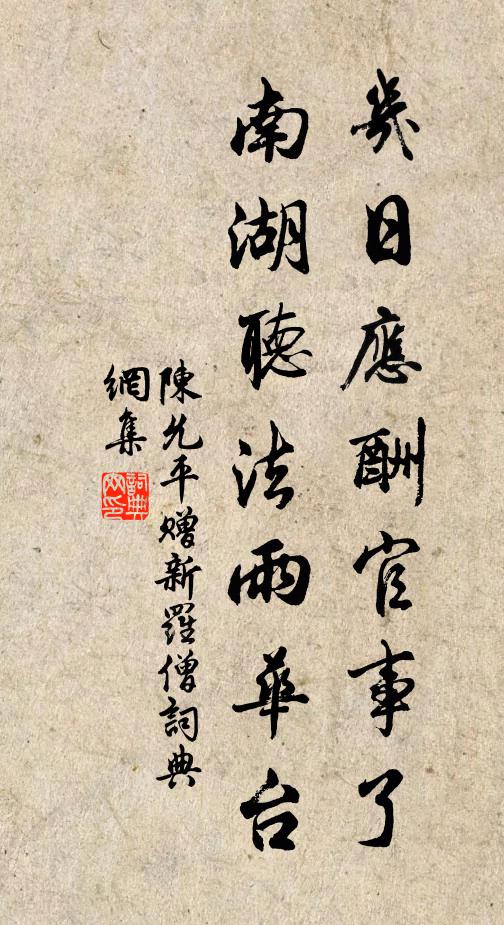 幾日應酬官事了
南湖聽法雨華台
陳允平贈新羅僧詞典
網集
詞典網印